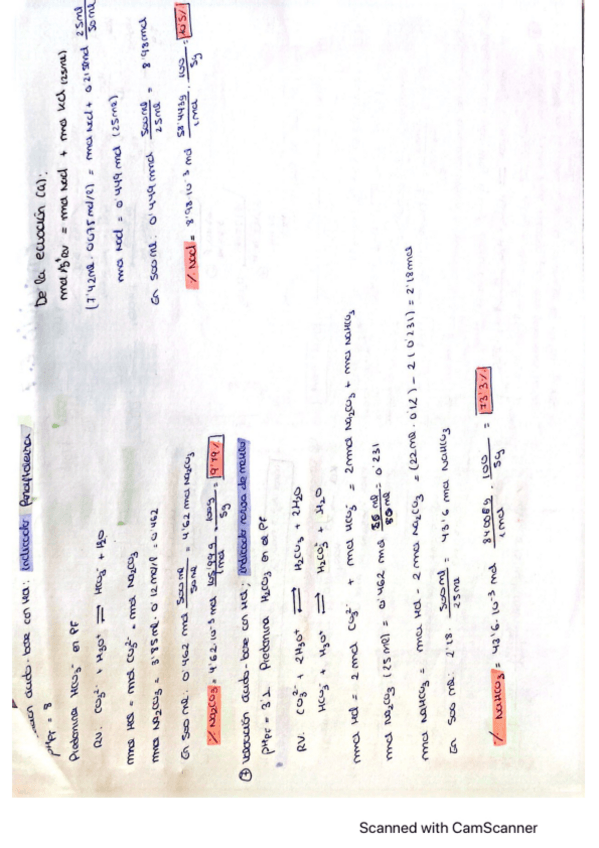 ción ácido-base con HCl; Indicador fenolftaleína
pHpf = 8
Predomina HCO3⁻ en PF
RV: CO3²⁻ + H3O⁺ ⇌ HCO3⁻ + H2O
mmol HCl = mmol CO3²⁻ = mmol Na2CO3
mmol Na2CO3 = 3'85ml · 0'12 mol/l = 0'462
En 500 ml: 0'462 mmol 500 ml / 50 ml = 4'62 mmol Na2CO3
% Na2CO3 = 4'62·10⁻³ mol 105'99 g / 1 mol · 100 / 5g = 9'79%
④ Valoración ácido-base con HCl; Indicador naranja de metilo
pHpf = 3'2 Predomina H2CO3 en el PF
RV: CO3²⁻ + 2H3O⁺ ⇌ H2CO3 + 2H2O
HCO3⁻ + H3O⁺ ⇌ H2CO3 + H2O
mmol HCl = 2 mmol CO3²⁻ + mmol HCO3⁻ = 2mmol Na2CO3 + mmol NaHCO3
mmol Na2CO3 (25ml) = 0'462 mmol = 0'231
mmol NaHCO3 = mmol HCl - 2 mmol Na2CO3 = (22ml · 0'12) - 2(0'231) = 2'18mmol
En 500 ml: 2'18 · 500ml / 25ml = 43'6 mmol NaHCO3
% NaHCO3 = 43'6·10⁻³ mol 84'008g / 1mol · 100 / 5g = 73'3%
De la ecuación (a):
mmol Ag⁺RV = mmol NaCl + mmol KCl (25ml)
(7'42ml · 0'0975 mol/l) = mmol NaCl + 25ml / 50ml
mmol NaCl = 0'449 mmol (25ml)
En 500 ml: 0'449 mmol 500ml / 25ml = 8'98mmol
% NaCl = 8'98·10⁻³ mol 58'443g / 1mol · 100 / 5g = 10'5%
Scanned with CamScanner